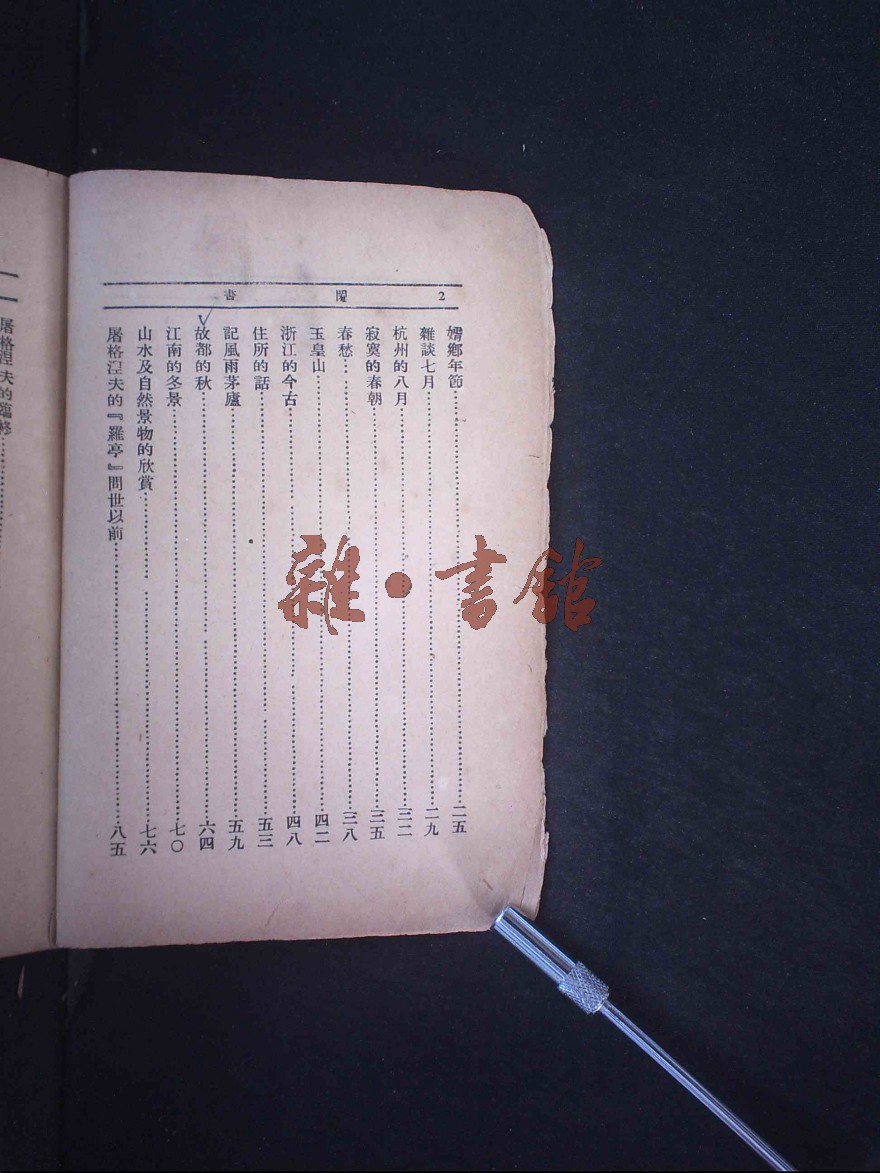 2 閒書
婿鄉年節……二五
雜談七月……二九
杭州的八月……三二
寂寞的春朝……三五
春愁……三八
玉皇山……四二
浙江的今古……四八
住所的話……五三
記風雨茅廬……五九
故都的秋……六四
江南的冬景……七〇
山水及自然景物的欣賞……七六
屠格涅夫的『羅亭』問世以前……八五
屠格涅夫的臨終……
雜·書館